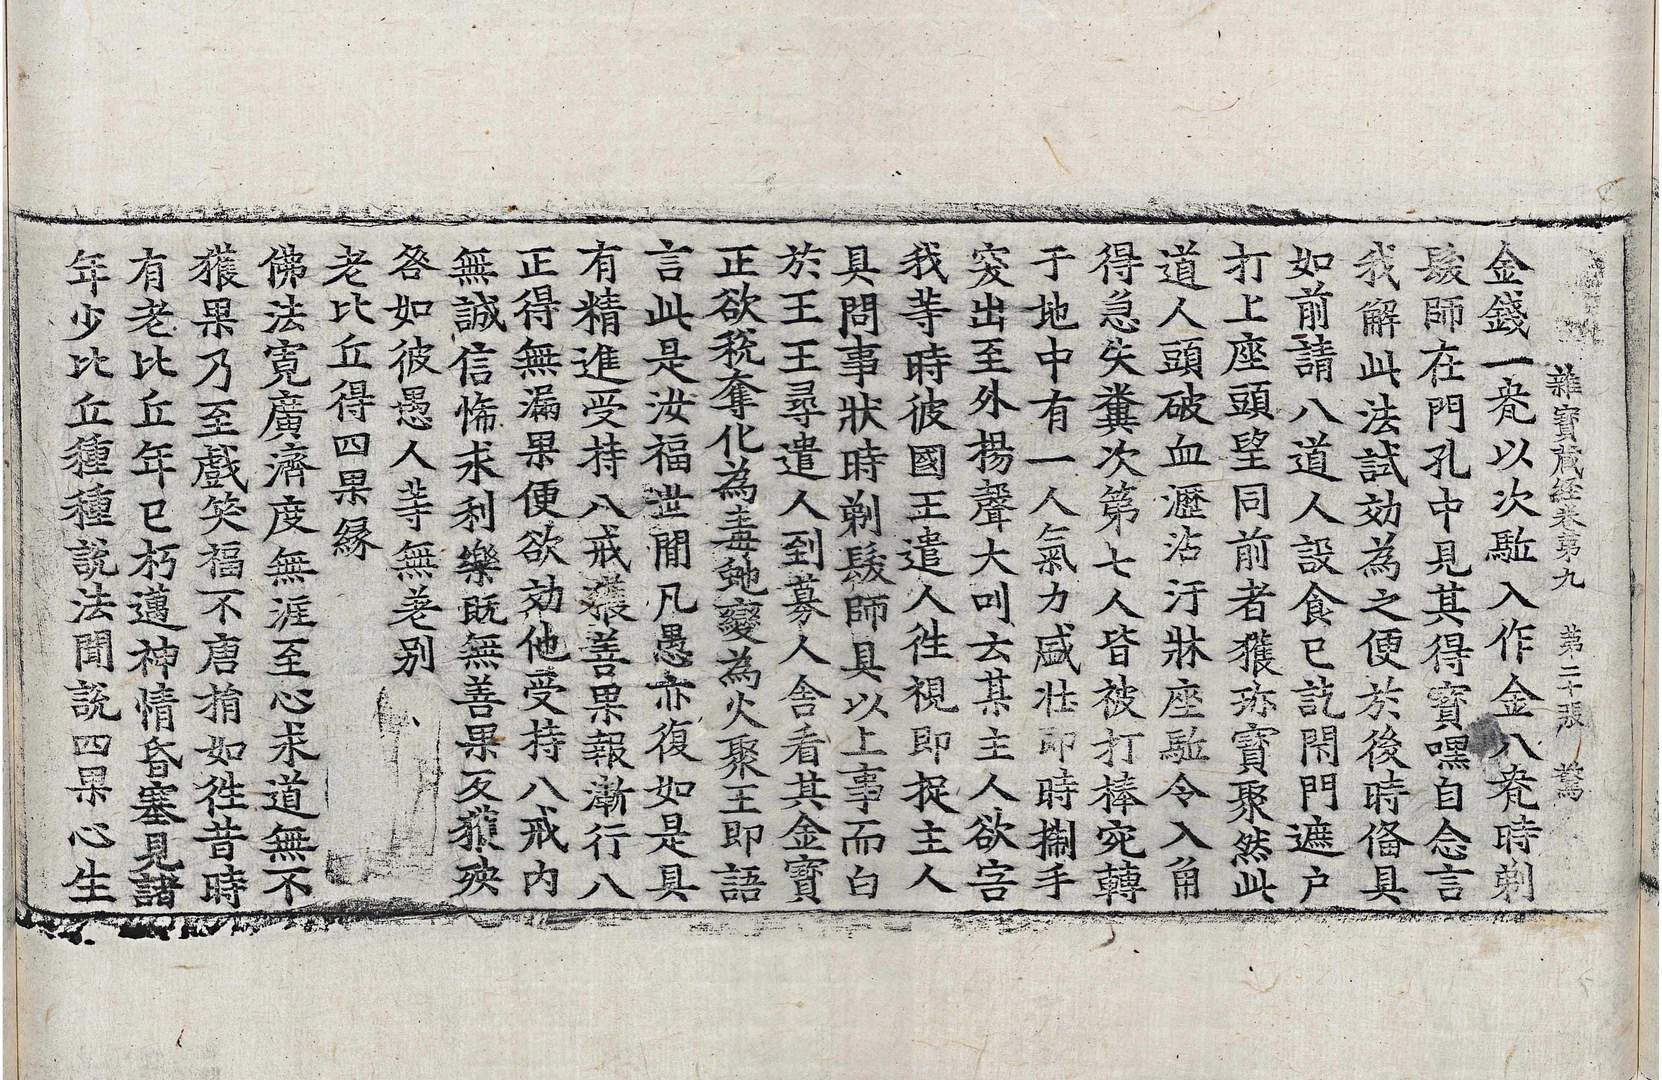 雜寶藏経卷第九　第二十張　驚
金錢一瓮以次駈入作金八瓮時剃
髮師在門孔中見其得寶嘿自念言
我解此法試効為之便於後時俻具
如前請八道人設食已訖閇門遮户
打上座頭望同前者獲珎寶聚然此
道人頭破血瀝沾汙牀座駈令入角
得急失糞次第七人皆被打棒宛轉
于地中有一人氣力盛壮即時搁手
突出至外揚聲大叫云某主人欲害
我等時彼國王遣人徃視即捉主人
具問事狀時剃髮師具以上事而白
於王王尋遣人到募人舍看其金寶
正欲稅奪化為毒虵變為火聚王即語
言此是汝福世閒凡愚亦復如是具
有精進受持八戒獲善果報漸行八
正得無漏果便欲効他受持八戒内
無誠信悕求利樂既無善果反獲殃
咎如彼愚人等無差别
老比丘得四果緣
佛法寬廣濟度無涯至心求道無不
獲果乃至戲笑福不唐捐如徃昔時
有老比丘年已朽邁神情昏塞見諸
年少比丘種種說法聞說四果心生